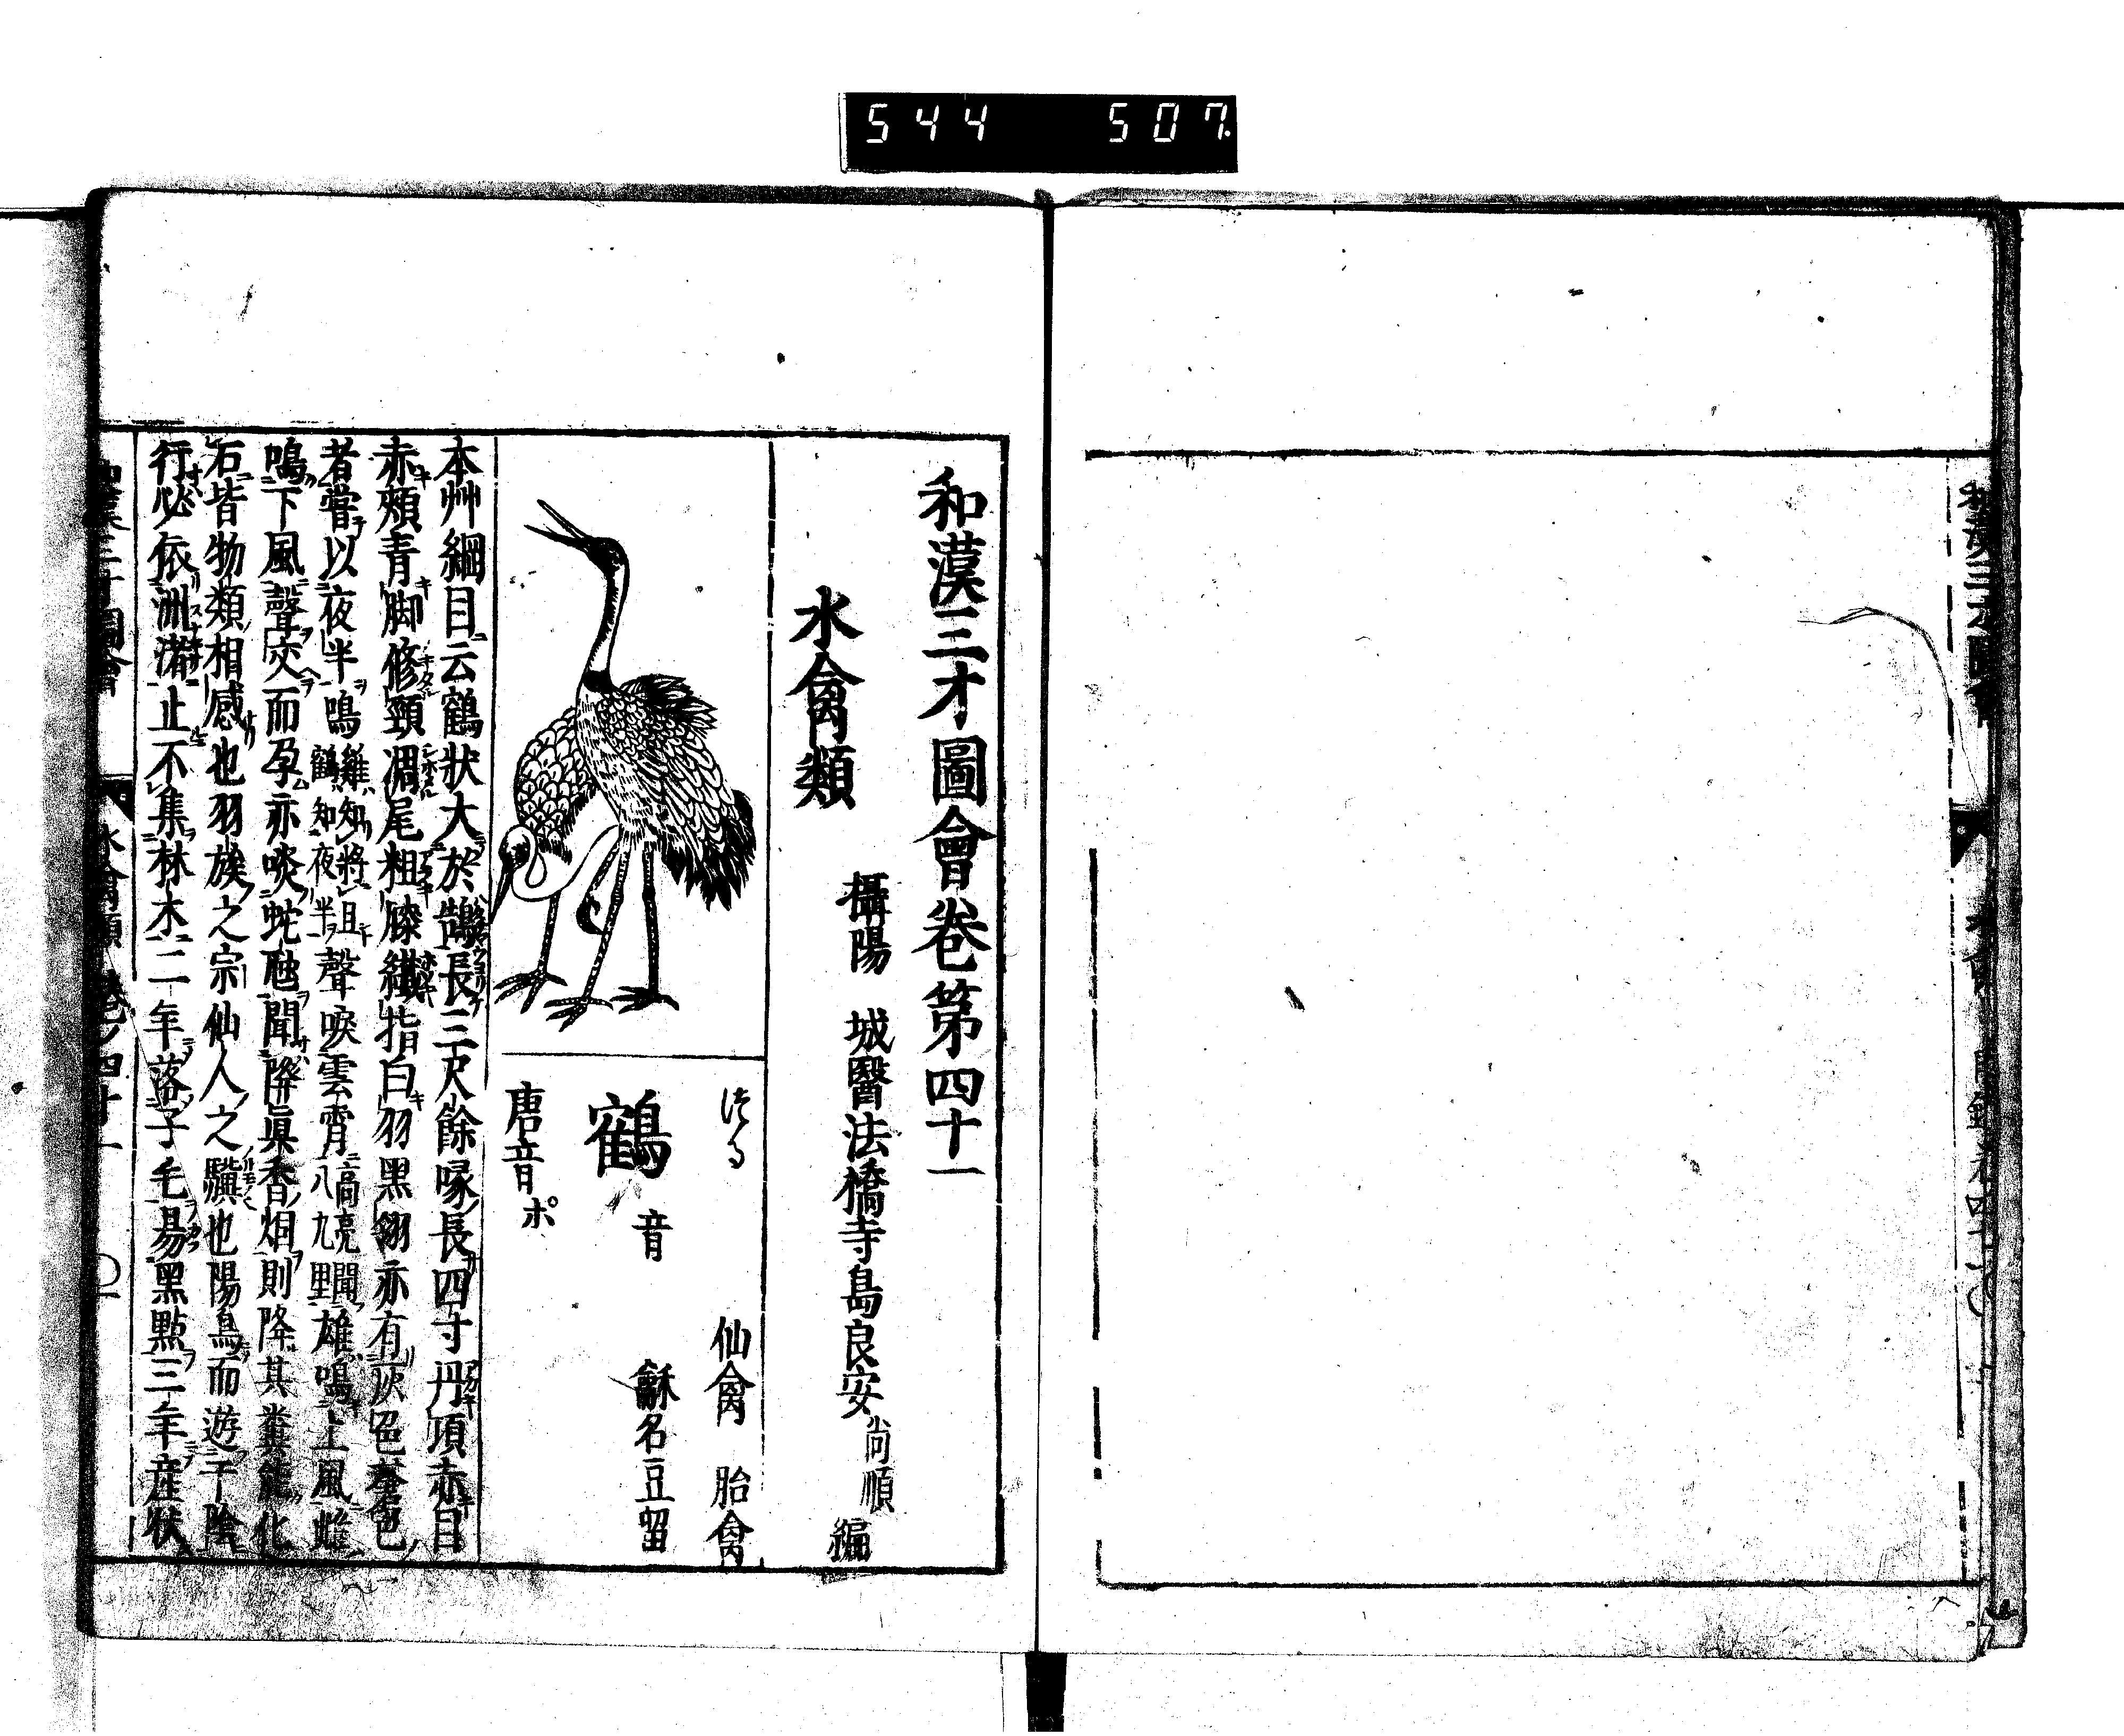 544 507
和漢三才圖會卷第四十一
攝陽 城醫法橋寺島良安尚順編
水禽類
つる
仙禽 胎禽
鶴音
龢名豆留
唐音ポ
本艸綱目云鶴狀大於鵠長三尺餘喙長四寸丹頂赤目
赤頰青脚修頸凋尾粗膝纎指白羽黑翎亦有灰色蒼色
者嘗以夜半鳴雞知將旦鶴知夜半聲唳雲霄高亮聞八九里雄鳴上風雌
鳴下風聲交而孕亦啖蛇虺聞降眞香烟則降其糞能化
石皆物類相感也羽族之宗仙人之驥也陽鳥而遊于陰
行必依洲渚止不集林木二年落子毛易黑點三年產狀
和漢三才圖會 水禽類 卷ノ四十一 〇一